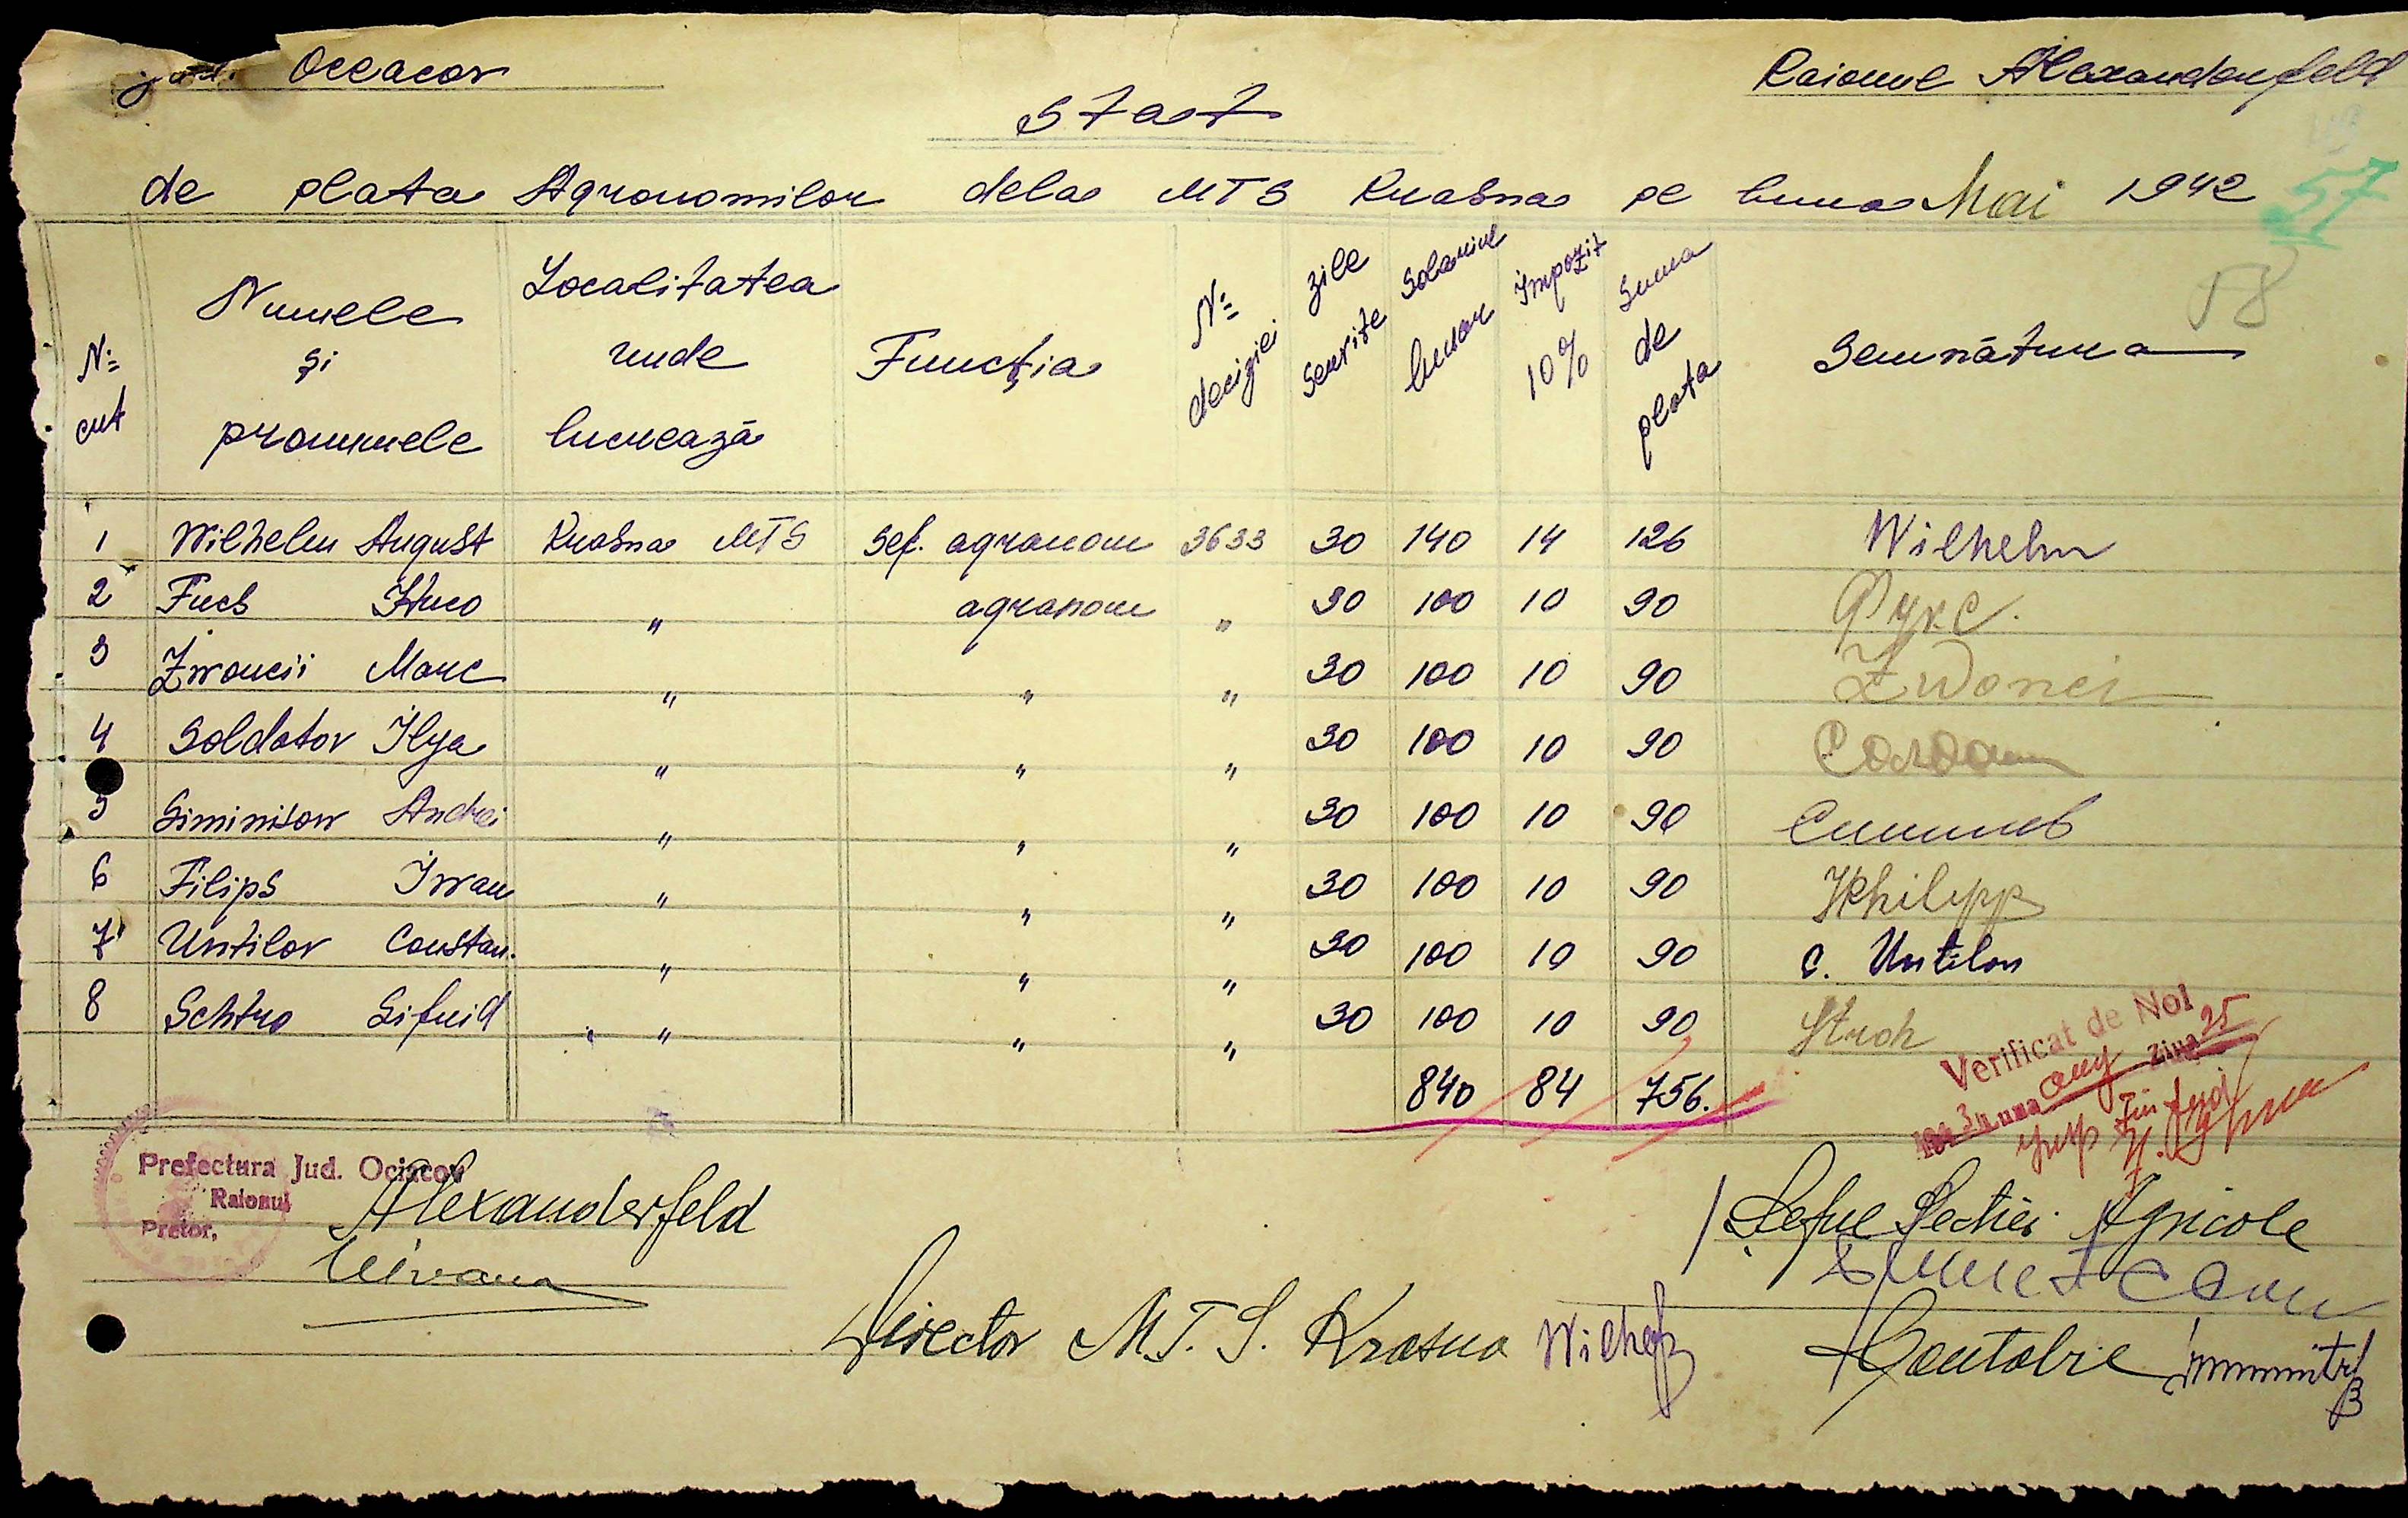 jud. Oceacov
Raionul Alexanderfeld
Stat
de plata Agronomilor dela MTS Krasna pe luna Mai 1942
57
58
N: crt
Numele și pronumele
Localitatea unde lucrează
Funcția
N: deciziei
zile servite
Solariul lunar
Impozit 10%
Suma de plata
Semnătura
1 Wilhelm August Krasna MTS Sef. agronom 3633 30 140 14 126 Wilhelm
2 Fucs Huco " agronom " 30 100 10 90 Фукс.
3 Zwoncii Marc " " " 30 100 10 90 Zwonci
4 Soldatov Ilya " " " 30 100 10 90
5 Siminisow Andrei " " " 30 100 10 90
6 Filips Iwan " " " 30 100 10 90 Philipp
7 Untilov Constan. " " " 30 100 10 90 C. Untilov
8 Schtro Sifrid " " " 30 100 10 90 Stroh
840 84 756.
Verificat de Noi
Ziua 25
Prefectura Jud. Ociacov
Raionul Alexanderfeld
Pretor,
Șeful Secției Agricole
Director M.T.S. Krasna
Contabil